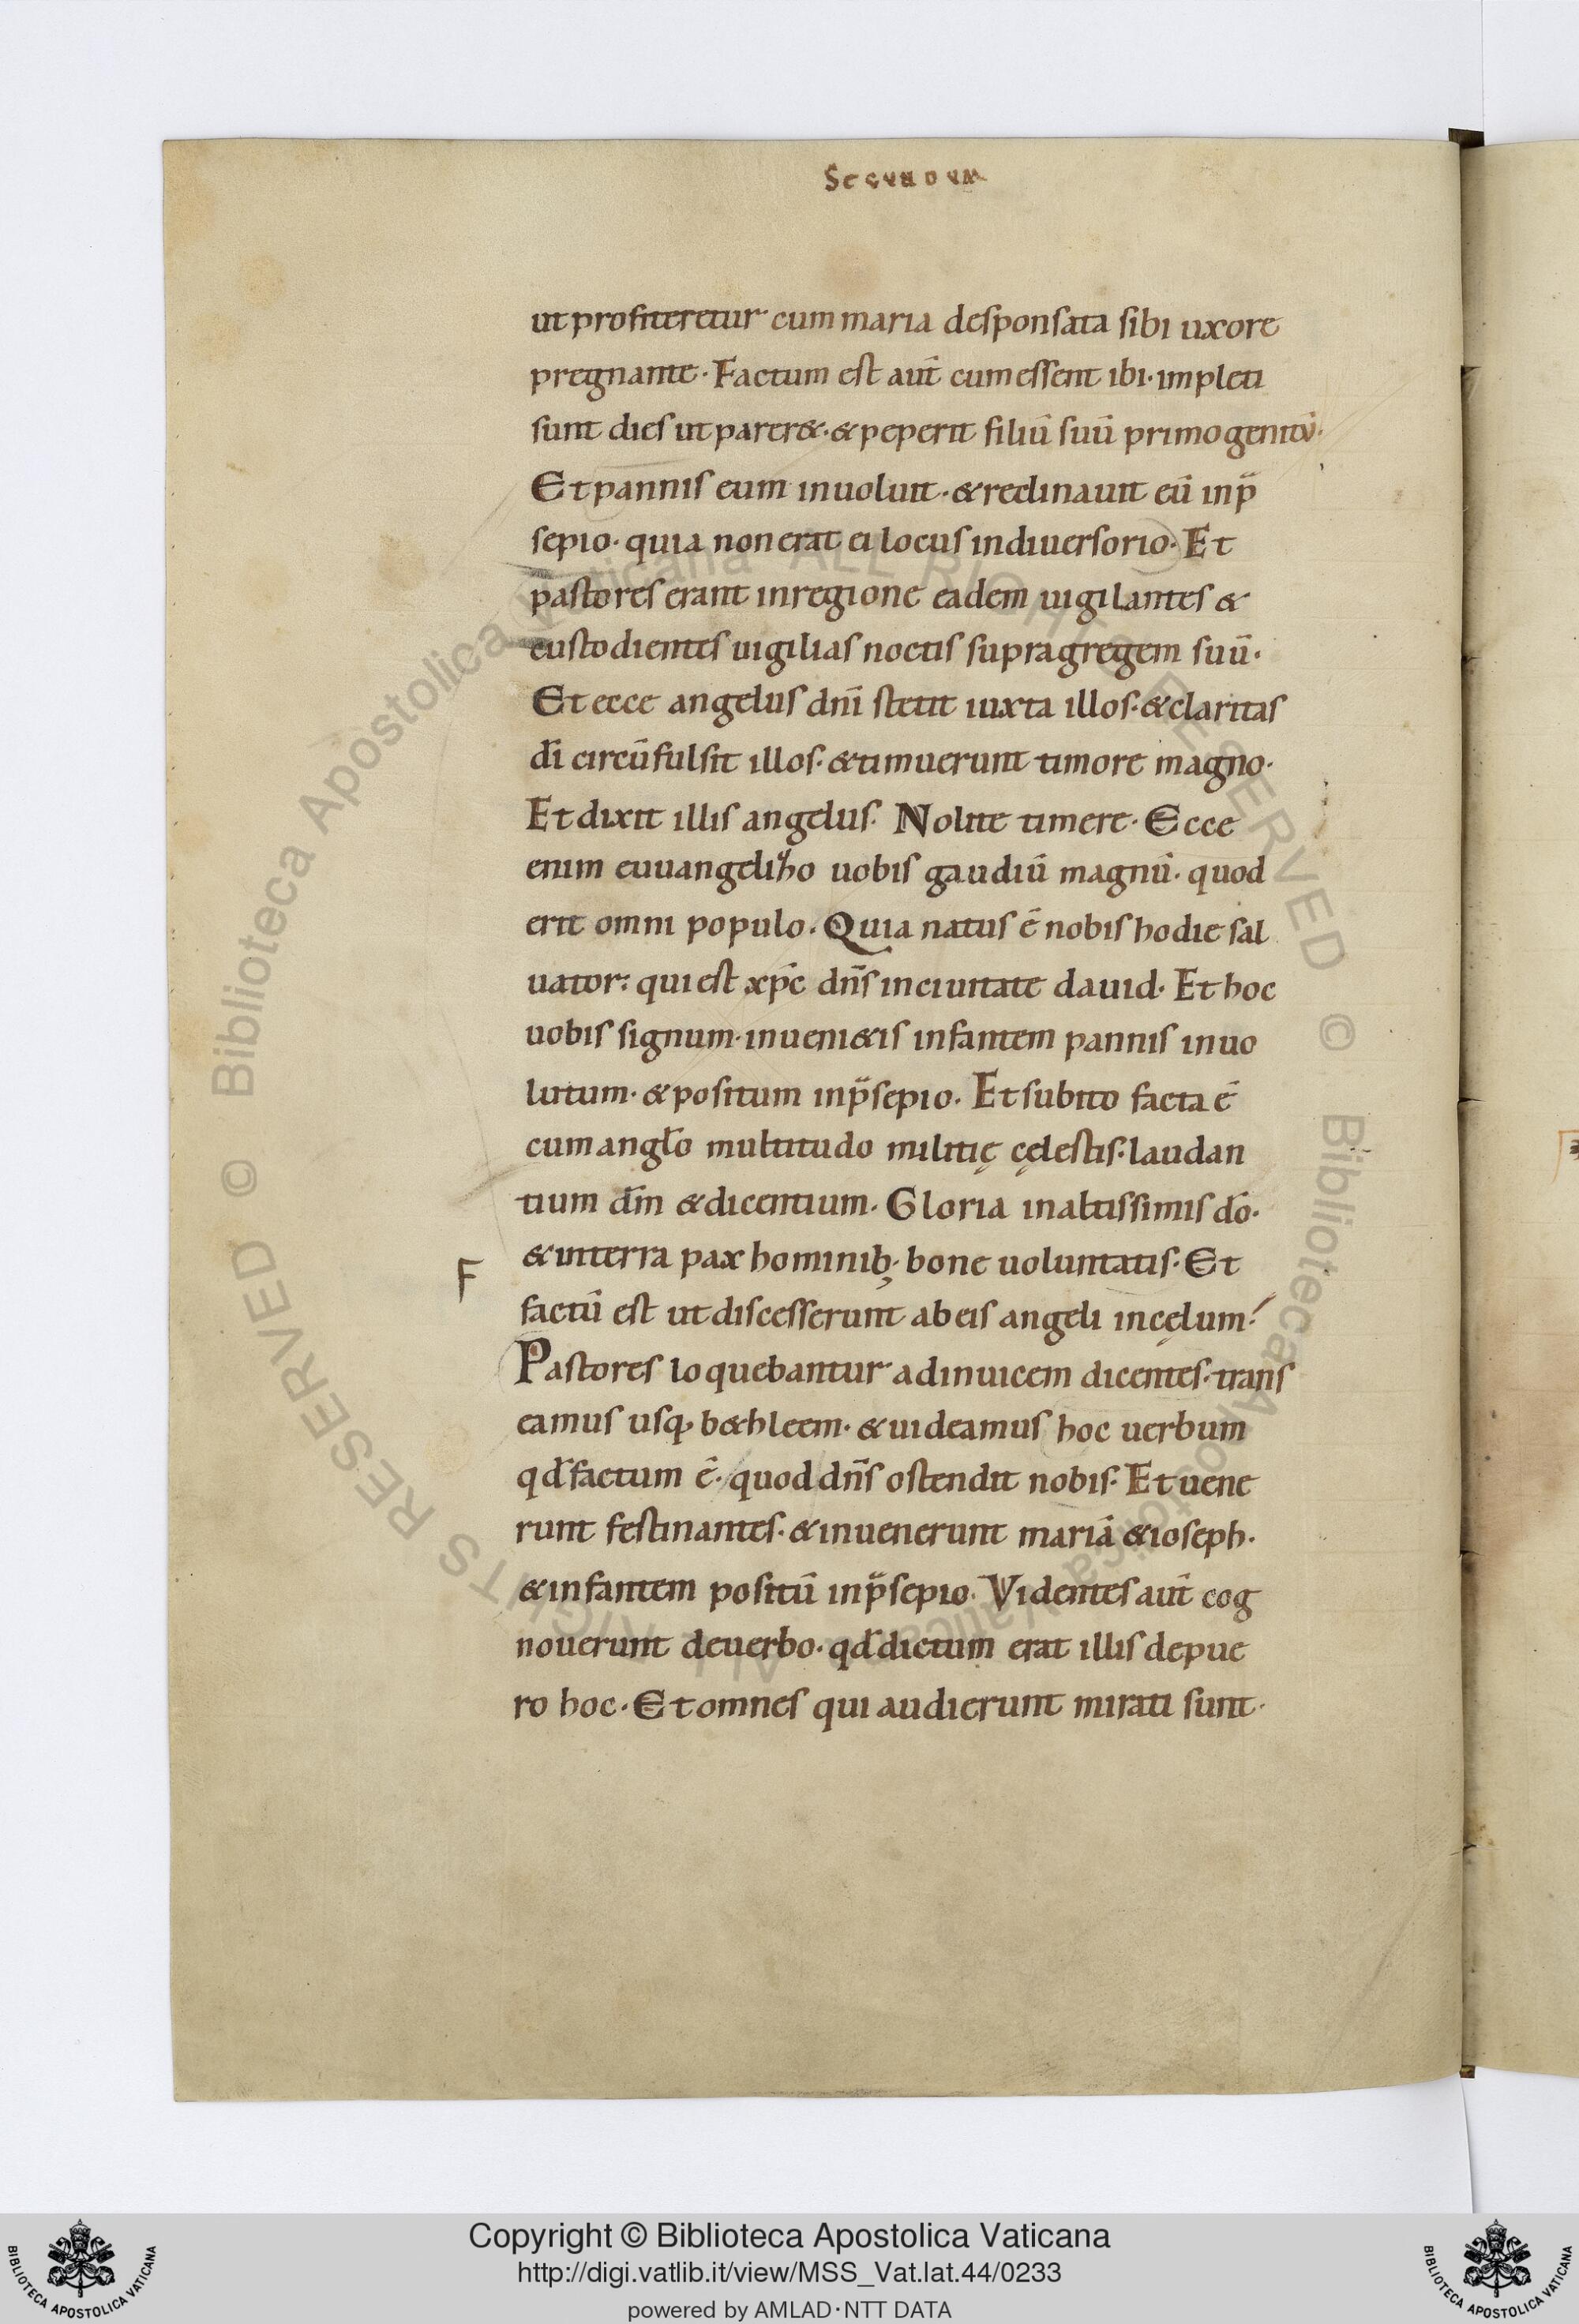 Secundum
ut profiteretur cum maria desponsata sibi uxore
pregnante· Factum est aut̄ cum essent ibi· impleti
sunt dies ut parer&· & peperit filiū suū primogenitū·
Et pannis eum inuoluit· & reclinauit eū inp̄
sepio· quia non erat ei locus indiuersorio· Et
pastores erant inregione eadem uigilantes &
custodientes uigilias noctis supra gregem suū·
Et ecce angelus dn̄i stetit iuxta illos· & claritas
dī circūfulsit illos· & timuerunt timore magno·
Et dixit illis angelus· Nolite timere· Ecce
enim euuangelizo uobis gaudiū magnū· quod
erit omni populo· Quia natus ē nobis hodie sal
uator: qui est xp̄c dn̄s inciuitate dauid· Et hoc
uobis signum· inueni&is infantem pannis inuo
lutum· & positum inp̄sepio· Et subito facta ē
cum angl̄o multitudo militię cęlestis· laudan
tium dm̄ & dicentium· Gloria inaltissimis dō·
& interra pax hominib;· bone uoluntatis· Et
F
factū est ut discesserunt ab eis angeli incęlum:
Pastores loquebantur adinuicem dicentes· trans
eamus usq; b&hleem· & uideamus hoc uerbum
qd̄ factum ē· quod dn̄s ostendit nobis· Et uene
runt festinantes· & inuenerunt mariā & ioseph·
& infantem positū inp̄sepio· Videntes aut̄ cog
nouerunt deuerbo· qd̄ dictum erat illis depue
ro hoc· Et omnes qui audierunt mirati sunt·
© Biblioteca Apostolica Vaticana ALL RIGHTS RESERVED
© Biblioteca Apostolica Vaticana ALL RIGHTS RESERVED
Copyright © Biblioteca Apostolica Vaticana
http://digi.vatlib.it/view/MSS_Vat.lat.44/0233
powered by AMLAD·NTT DATA
BIBLIOTECA APOSTOLICA VATICANA
BIBLIOTECA APOSTOLICA VATICANA